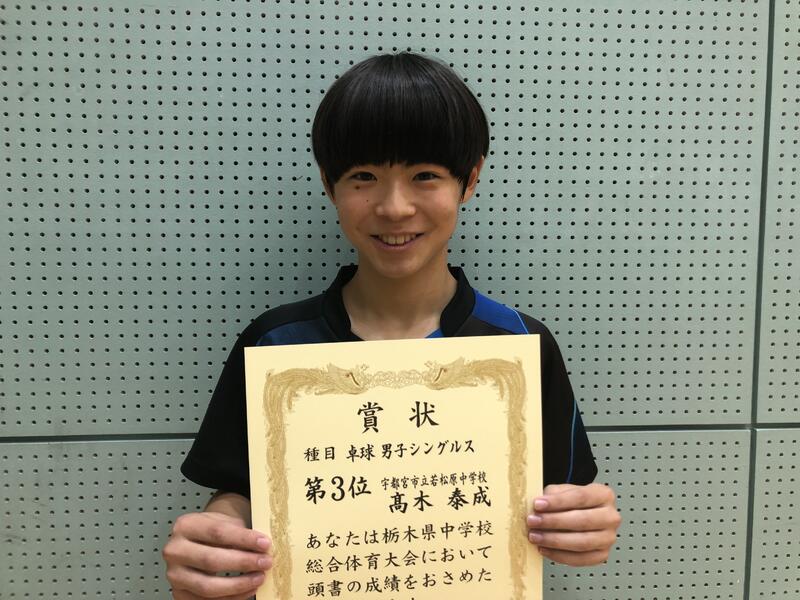 賞状
種目 卓球 男子シングルス
第3位 宇都宮市立若松原中学校
髙木 泰成
あなたは栃木県中学校
総合体育大会において
頭書の成績をおさめた